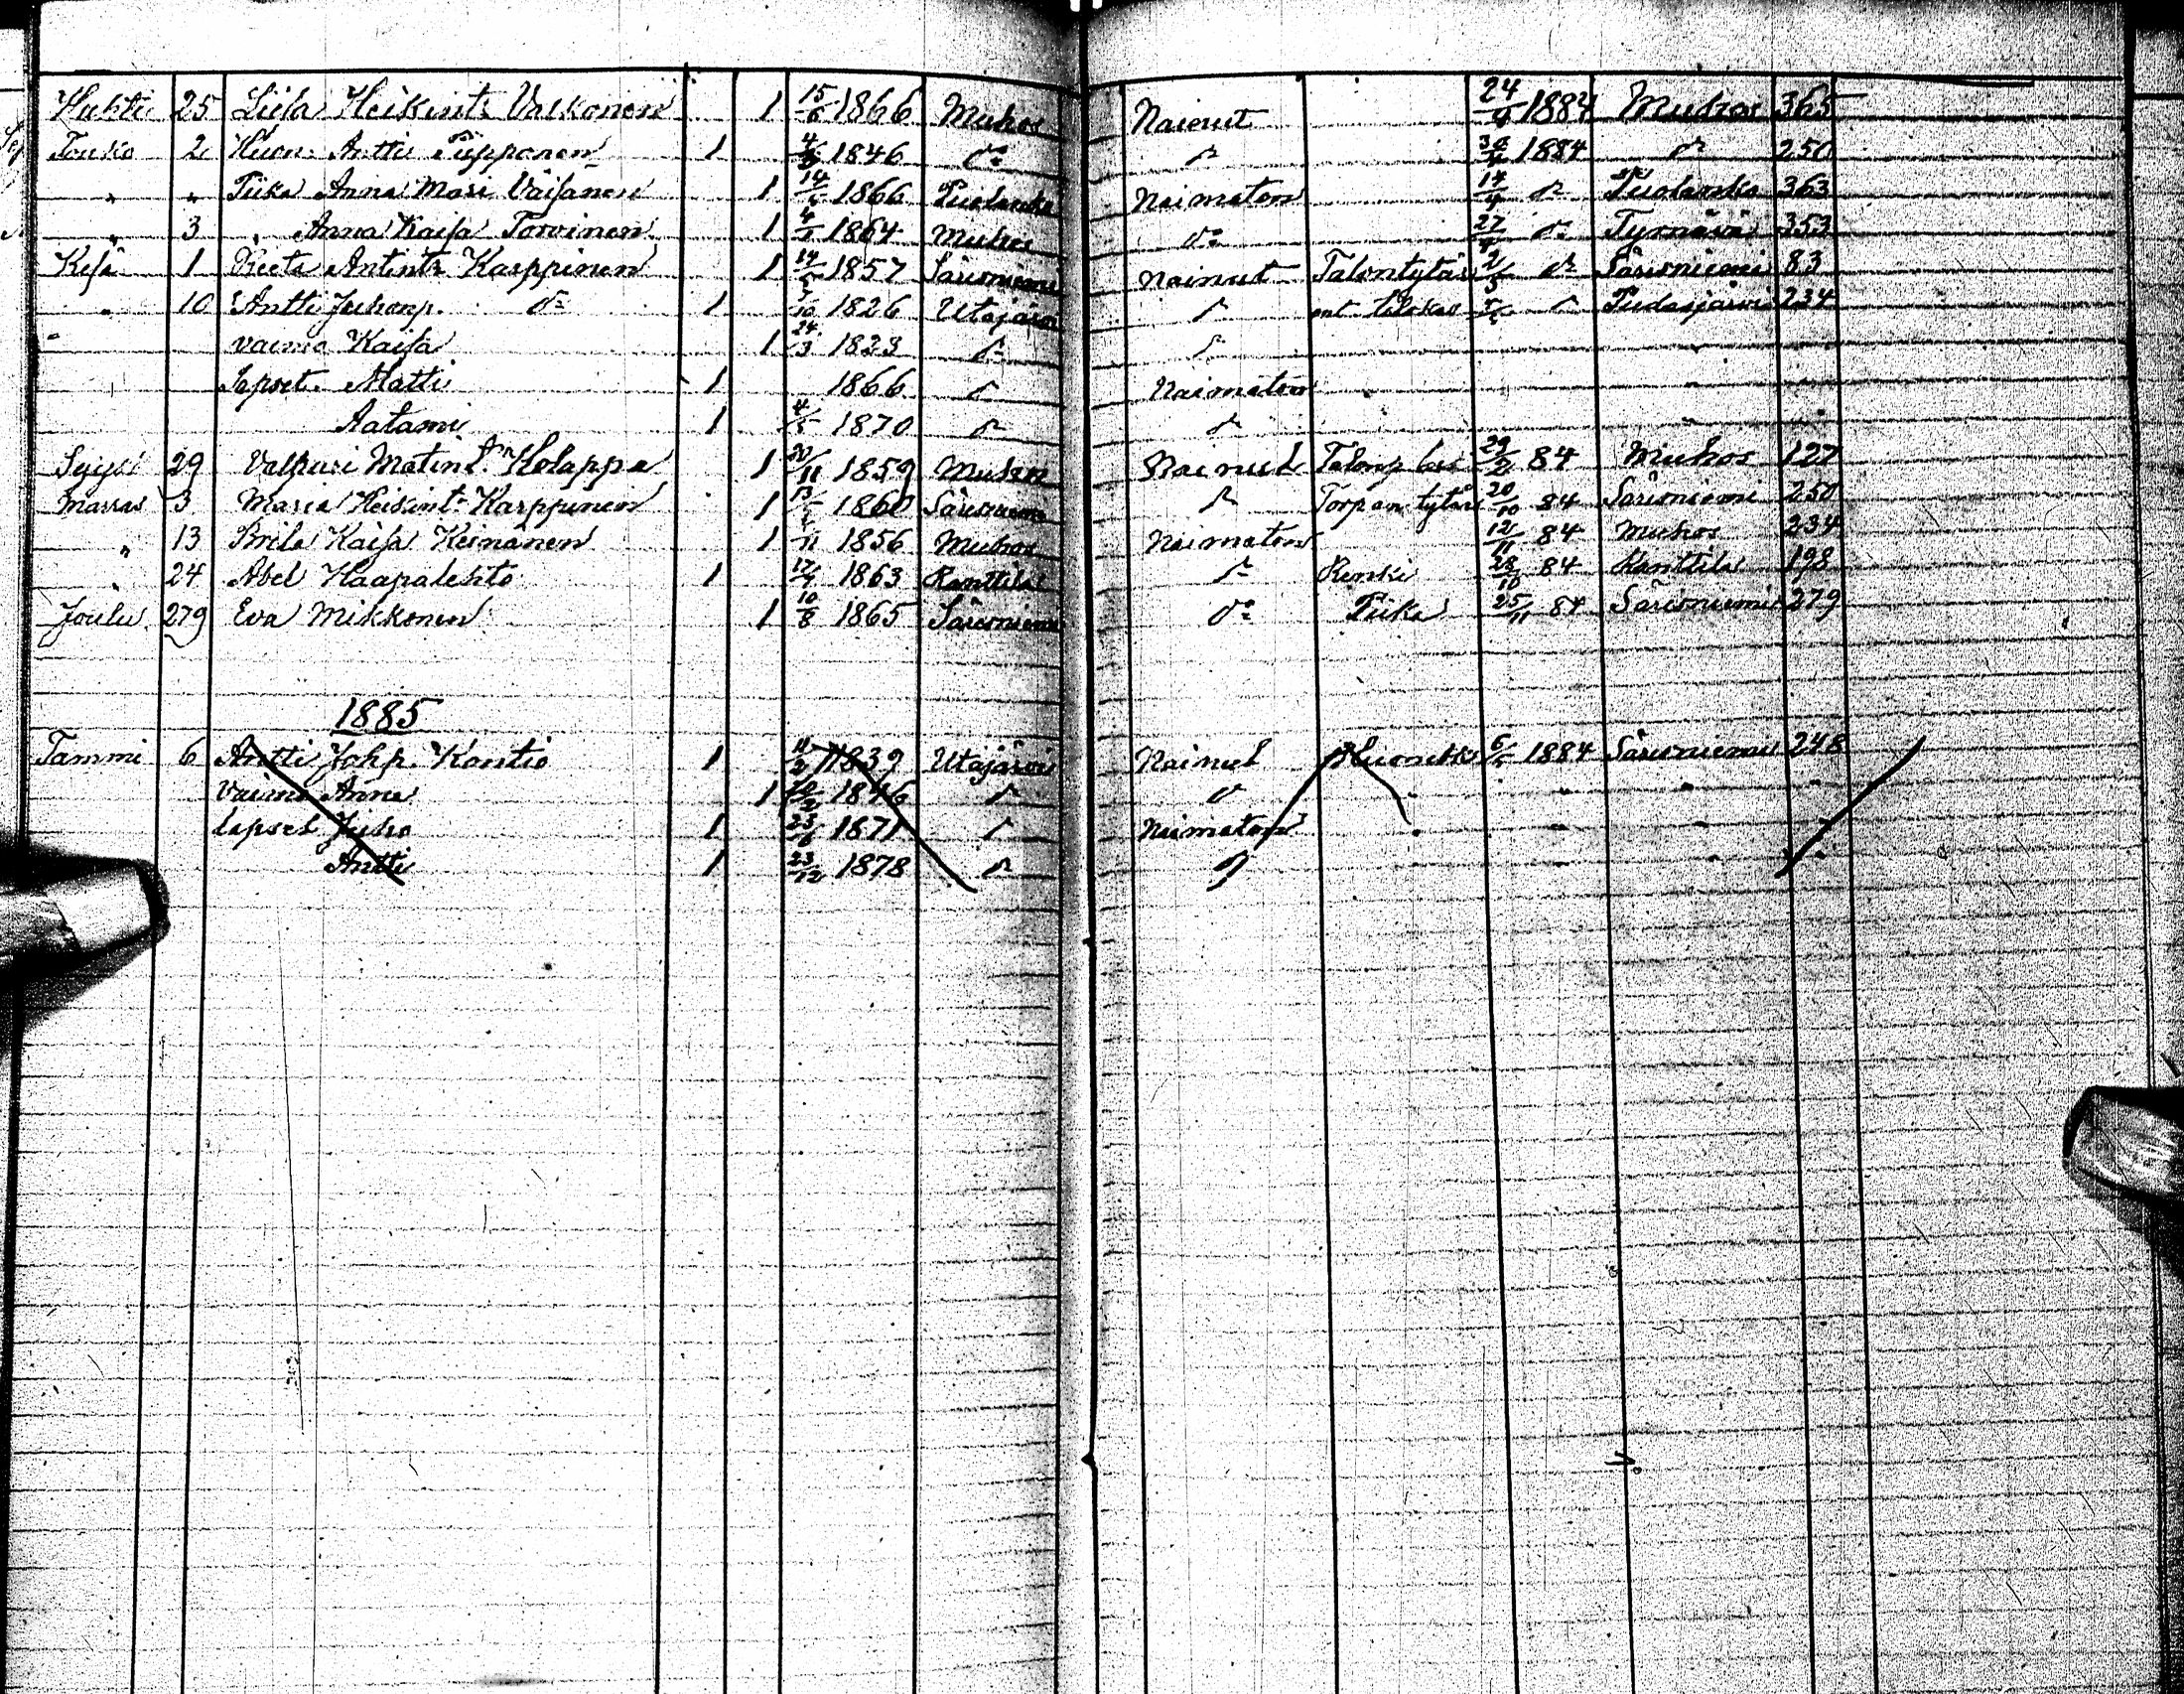 Huhti 25 Liila Heikint. Valkonen 1 15/6 1866 Muhos Nainut 24/4 1884 Muhos 365
Touko 2 Huon. Antti Piipponen 1 1846 do Do 30/4 1884 do 250
" " Piika Anna Mari Väisänen 1 14/4 1866 Puolanka Naimaton 14/4 do Puolanka 363
" 3 " Anna Kaisa Torvinen 1 1864 Muhos do 27/4 do Tyrnävä 353
Kesä 1 Reeta Antint. Karppinen 1 1857 Säräisniemi Nainut Talontytär do Säräisniemi 83
" 10 Antti Juhonp. do 1 1826 Utajärvi do Pudasjärvi 234
" vaimo Kaisa 1 24/3 1823 do do
Lapset Matti 1 1866 do Naimaton
Aatami 1 4/5 1870 do do
Syys 29 Valpuri Matint. Holappa 1 20/11 1859 Muhos Nainut 84 Muhos 127
Marras 3 Maria Heikint. Karppinen 1 1860 Säräisniemi do Torpan tytär 20/10 84 Säräisniemi 250
" 13 Priita Kaisa Keinänen 1 11 1856 Muhos Naimaton 12/11 84 Muhos 234
" 24 Abel Haapalehto 1 1863 Ranttila do Renki 28/10 84 Ranttila 198
Joulu 279 Eva Mikkonen 1 10/8 1865 Säräisniemi do Piika 25/11 84 Säräisniemi 279
1885
Tammi 6 Antti Johp. Kontio 1 11/2 1839 Utajärvi Nainut 1884 Säräisniemi 248
Vaimo Anna 1 1846 do do " " "
lapset Juho 1 1871 do Naimaton " " " "
Antti 1 23/12 1878 do do " " "